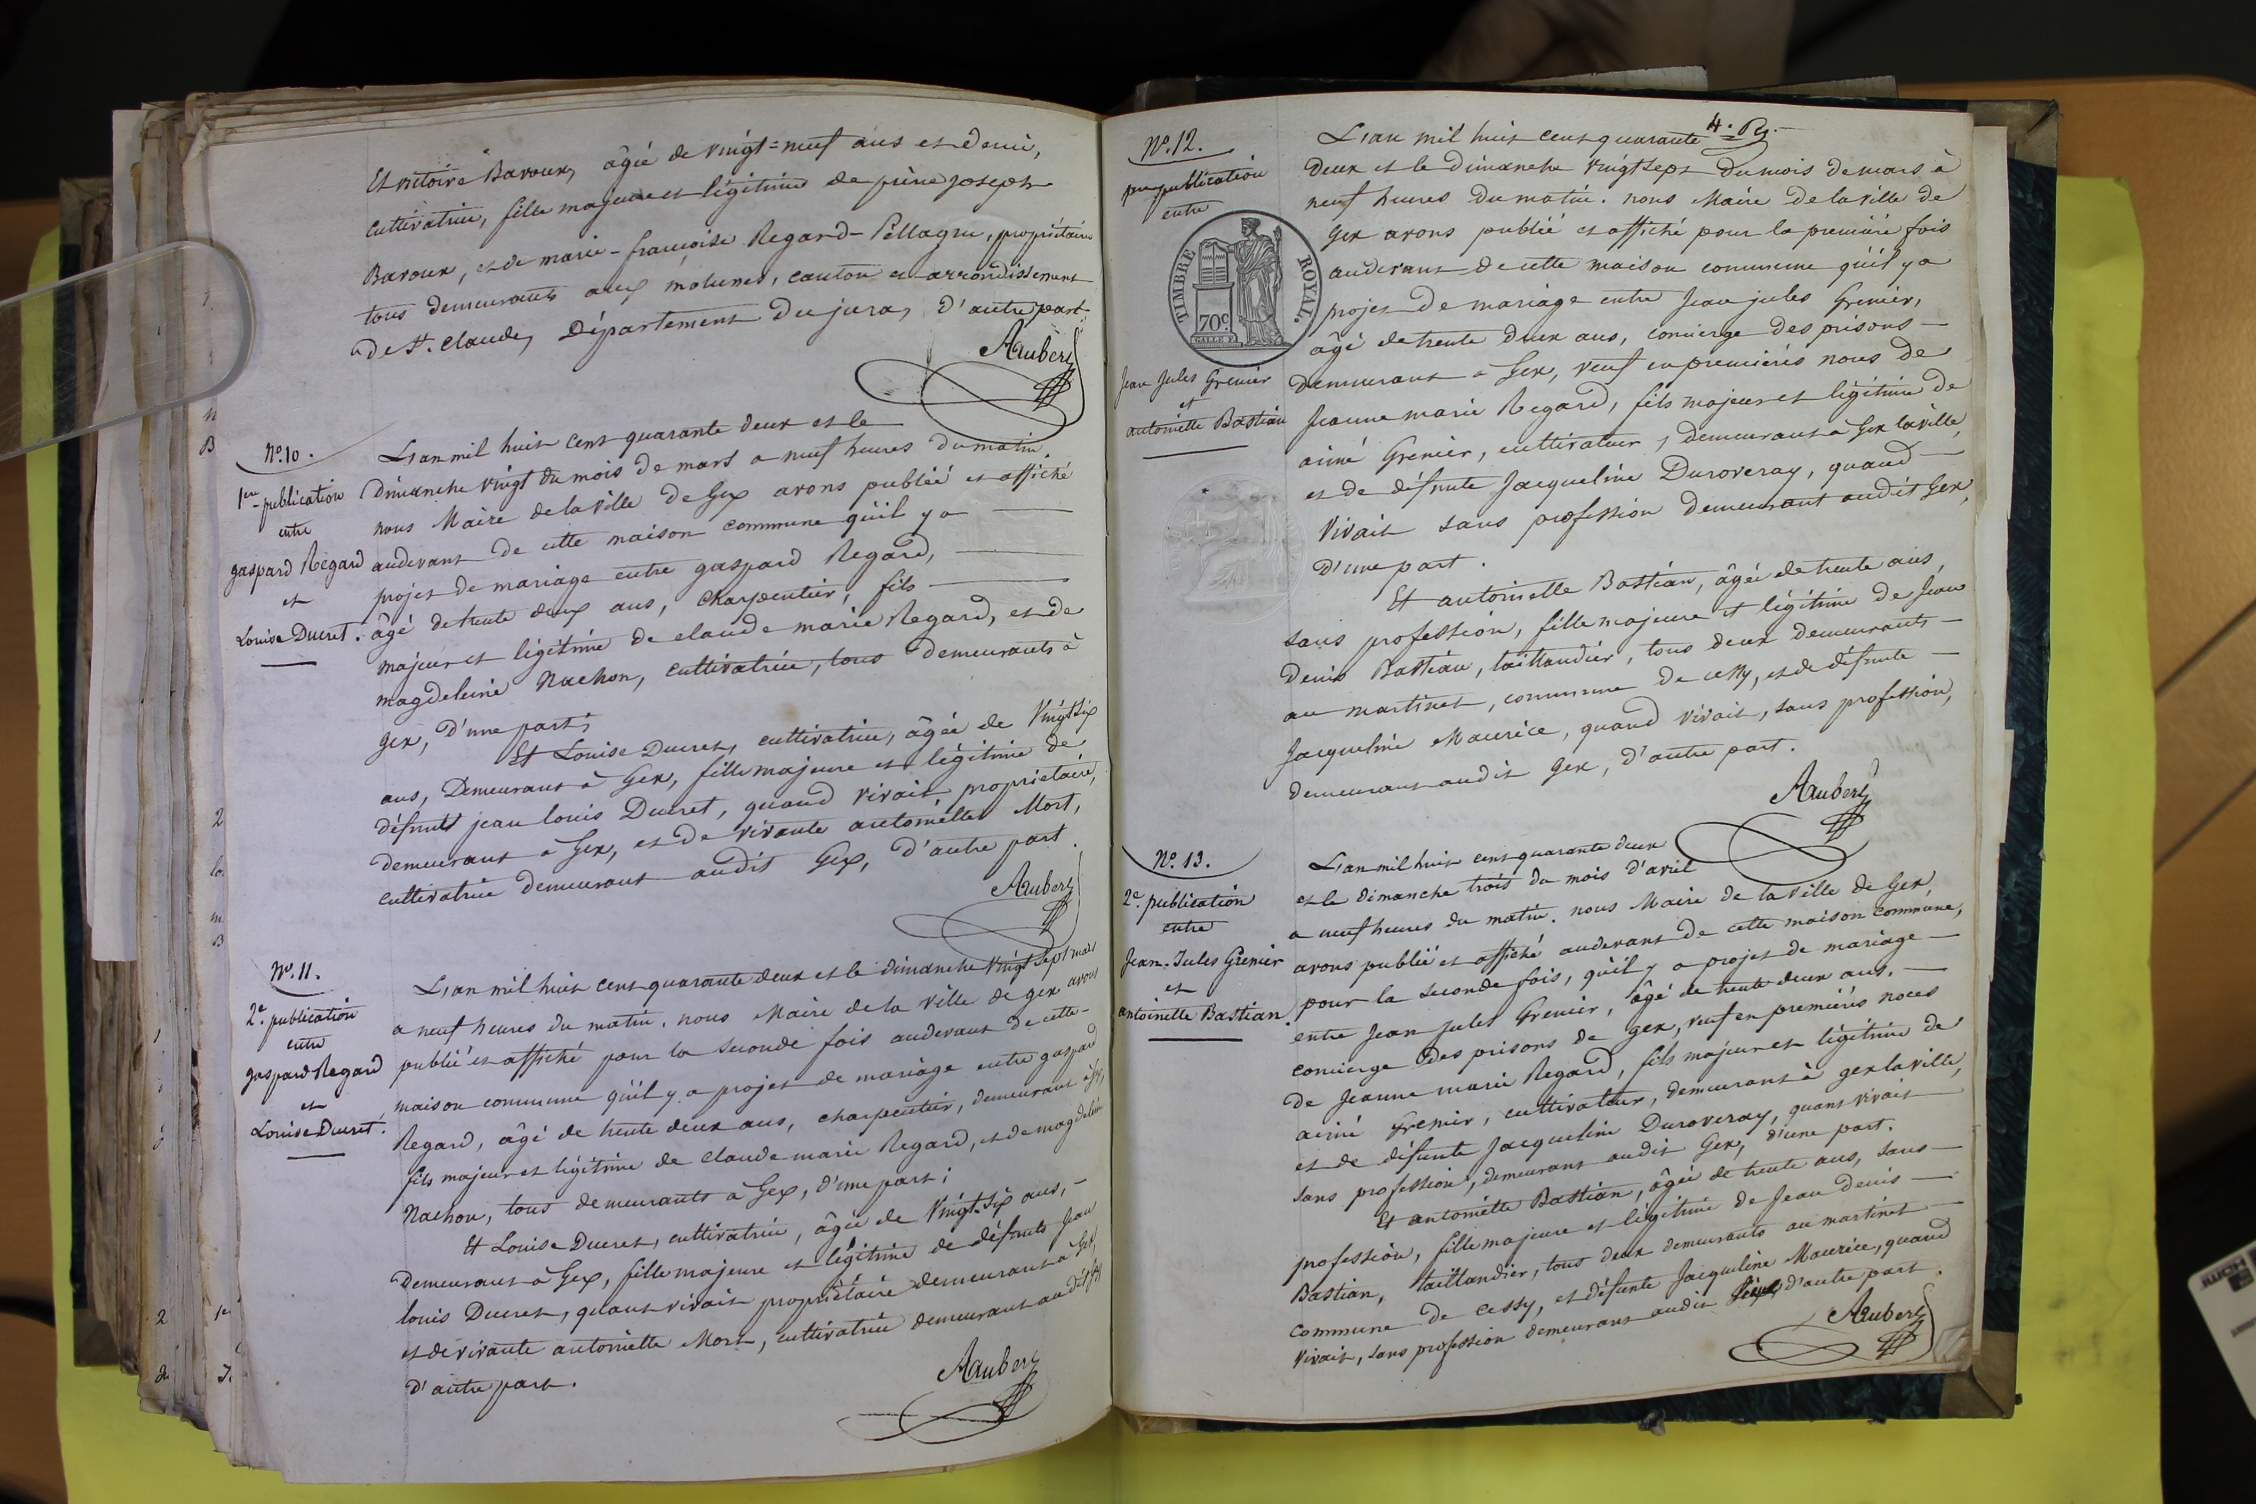 Et victoire Baroux, âgée de vingt=neuf ans et demi,
cultivatrice, fille majeure et légitime de pierre joseph
Baroux, et de marie-françoise Regard-Pellagru, propriétaires
tous demeurants aux molunes, canton et arrondissement
de St. Claude, Département du jura, d'autre part.
Aaubert
No. 10.
1ere publication
entre
gaspard Regard
et
Louise Ducret.
L'an mil huit cent quarante deux et le
Dimanche vingt du mois de mars a neuf heures du matin.
nous Maire de la ville de Gex avons publié et affiché
audevant de cette maison commune qu'il y a
projet de mariage entre gaspard Regard,
âgé de trente deux ans, charpentier, fils
majeur et légitime de claude marie Regard, et de
magdeleine Nachon, cultivatrice, tous demeurants à
gex, d'une part;
Et Louise Ducret, cultivatrice, âgée de Vingt Six
ans, Demeurant à Gex, fille majeure et légitime de
défunt jean louis Ducret, quand vivait, propriétaire,
demeurant à Gex, et de vivante antoinette Mort,
cultivatrice demeurant audit Gex, d'autre part.
Aaubert
No. 11.
2e. publication
entre
gaspard Regard
et
Louise Ducret.
L'an mil huit cent quarante deux et le dimanche Vingt sept mars
a neuf heures du matin. nous Maire de la ville de gex avons
publié et affiché pour la seconde fois audevant de cette
maison commune qu'il y a projet de mariage entre gaspard
Regard, âgé de trente deux ans, charpentier, demeurant à Gex,
fils majeur et légitime de claude marie Regard, et de magdeleine
Nachon, tous demeurants à Gex, d'une part;
Et Louise Ducret, cultivatrice, âgée de Vingt-Six ans,
Demeurant à Gex, fille majeure et légitime de défunts Jean
louis Ducret, quant vivait propriétaire demeurant à Gex,
et de vivante antoinette Mort, cultivatrice demeurant audit Gex
d'autre part.
Aaubert
4.
No. 12.
pre publication
entre
TIMBRE ROYAL.
70c.
Jean Jules Grenier
et
antoinette Bastian
L'an mil huit cent quarante
Deux et le dimanche vingt sept du mois de mars à
neuf heures du matin. nous Maire de la ville de
gex avons publié et affiché pour la première fois
audevant de cette maison commune qu'il y a
projet de mariage entre Jean jules Grenier,
âgé de trente deux ans, concierge des prisons
demeurant à Gex, veuf en premières noces de
Jeanne marie Regard, fils majeur et légitime de
aimé Grenier, cultivateur, demeurant à Gex la ville,
et de défunte Jacqueline Duroveray, quand
vivait sans profession demeurant audit Gex,
d'une part.
Et antoinette Bastian, âgée de trente ans,
sans profession, fille majeure et légitime de Jean
Denis Bastian, taillandier, tous deux demeurants
au martinet, commune de cessy, et de défunte
Jacqueline Maurice, quand vivait, sans profession,
demeurant audit gex, d'autre part.
Aaubert
No. 13.
2e. publication
entre
Jean-Jules Grenier
et
antoinette Bastian.
L'an mil huit cent quarante deux
et le dimanche trois du mois d'avril
a neuf heures du matin. nous Maire de la ville de Gex,
avons publié et affiché audevant de cette maison commune,
pour la seconde fois, qu'il y a projet de mariage
entre Jean jules Grenier, âgé de trente deux ans,
concierge des prisons de gex, veuf en premières noces
de Jeanne marie Regard, fils majeur et légitime de
aimé Grenier, cultivateur, demeurant à gex la ville,
et de défunte Jacqueline Duroveray, quant vivait
sans profession, demeurant audit Gex, d'une part.
Et antoinette Bastian, âgée de trente ans, sans
profession, fille majeure et légitime de Jean denis
Bastian, taillandier, tous deux demeurants au martinet
commune de cessy, et défunte Jacqueline Maurice, quand
vivait, sans profession demeurant audit d'autre part.
Aaubert